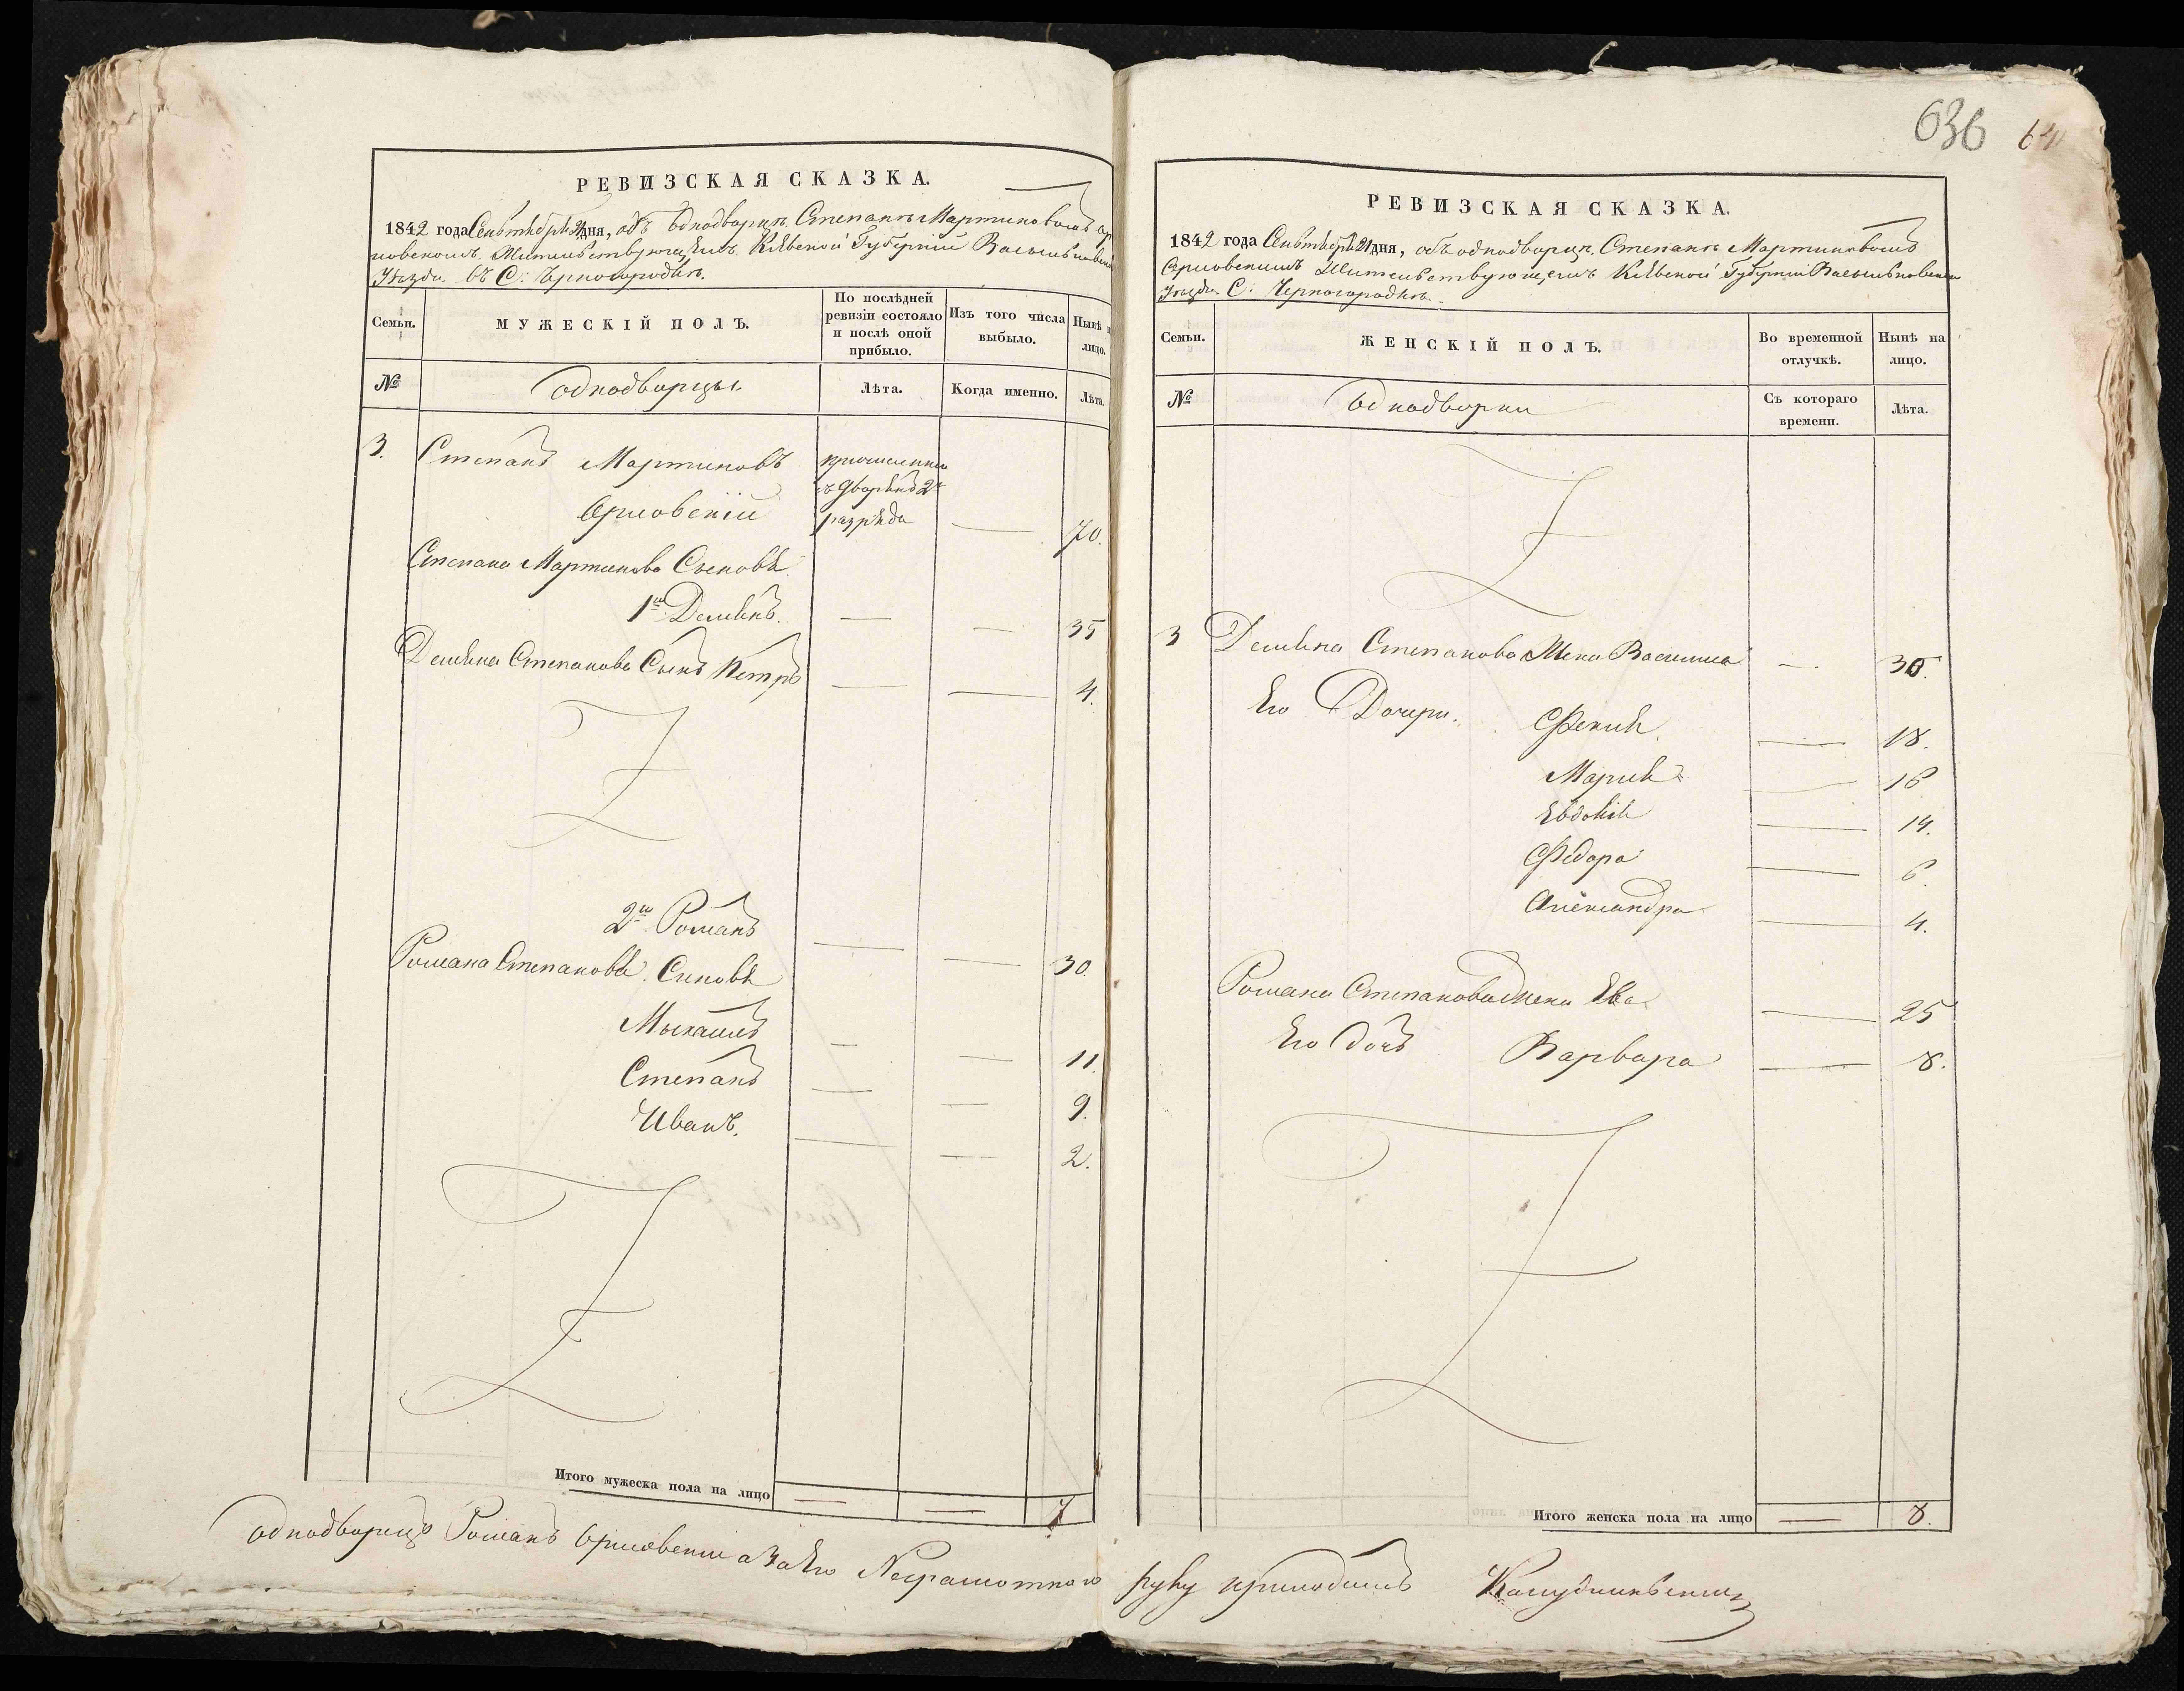 РЕВИЗСКАЯ СКАЗКА.
1842 года Сентября 21 дня, объ однодворцѣ Степанѣ Мартиновомъ Ор
ловскомъ Жительствующемъ Кіевской Губерніи Васильковскаго
Уѣзда въ С: Черногородкѣ.
Семьи.
МУЖЕСКІЙ ПОЛЪ.
По послѣдней ревизіи состояло и послѣ оной прибыло.
Изъ того числа выбыло.
Нынѣ
лицо.
№
однодворцы
Лѣта.
Когда именно.
Лѣта.
3. Степанъ Мартиновъ причисленны
съ дворянъ 2
Орловскій разряда — 70.
Степана Мартинова Сыновя
1й Демянъ. — — 35
Демяна Степанова Сынъ Петръ — — 4.
2й Романъ — — 30.
Романа Степанова Синовя
Мыхаилъ — — 11.
Степанъ — — 9.
Иванъ. — — 2.
Итого мужеска пола на лицо — — 7
636 64
РЕВИЗСКАЯ СКАЗКА.
1842 года Сентября 21 дня, объ однодворцѣ Степанѣ Мартиновомъ
Орловскимъ Жительствующемъ Кіевской Губерніи Васильковскаго
Уѣзда С: Черногородкѣ.
Семьи.
ЖЕНСКІЙ ПОЛЪ.
Во временной отлучкѣ.
Нынѣ на лицо.
№
Однодворки
Съ котораго времени.
Лѣта.
3 Демяна Степанова Жена Василиса — 30.
Его Дочери. Фекля — 18.
Марія — 16
Евдокія — 14.
Федора — 6.
Александра — 4.
Романа Степанова Жена Ева — 25
Его дочъ Варвара — 8.
Итого женска пола на лицо — 8.
однодворецъ Романъ Орловскій а За Его Неграмотного руку приложилъ